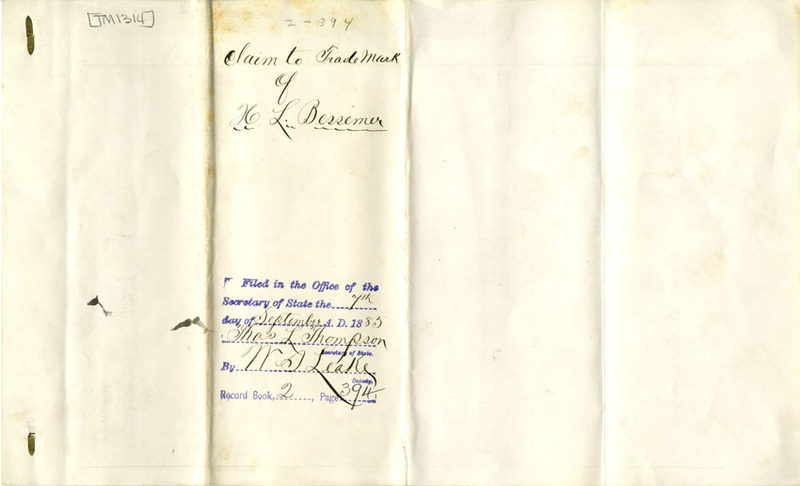 [TM1314]
2-394
Claim to Trade Mark
of
H. L. Bessemer
Filed in the Office of the
Secretary of State the 7th
day of September A. D. 1885
Thos L Thompson
Secretary of State.
By W D Leake
Deputy.
Record Book, 2, Page 394